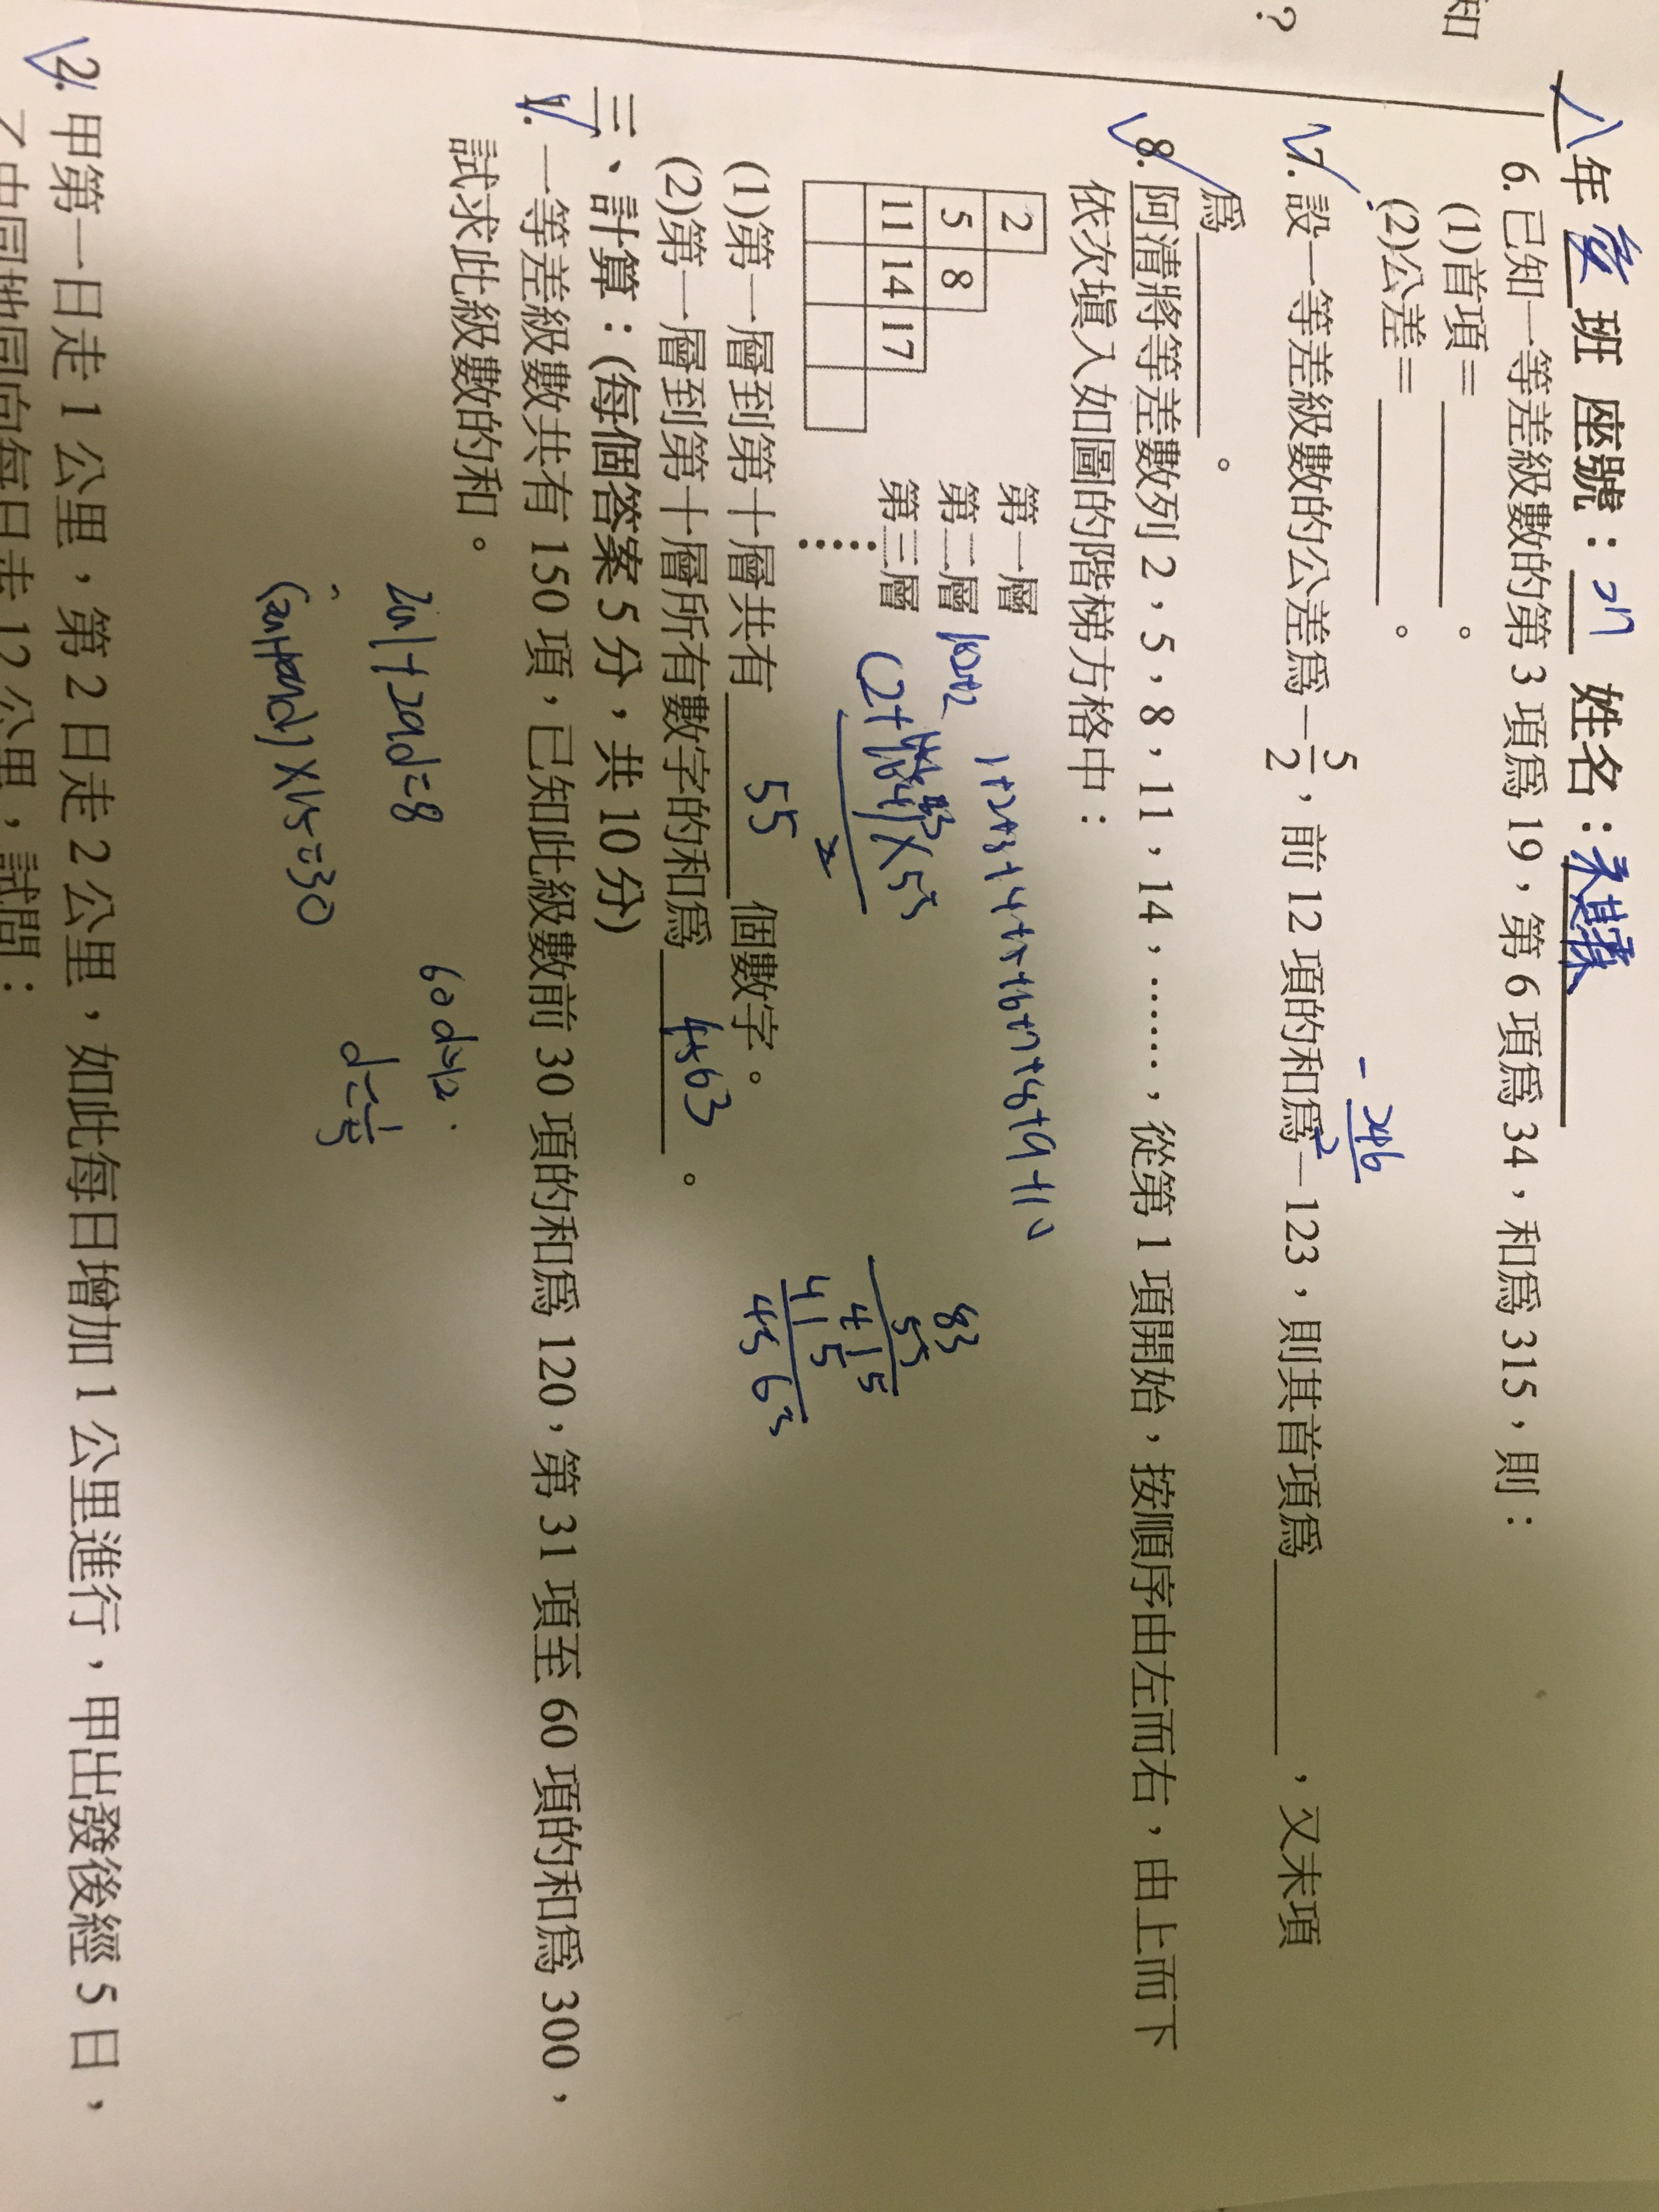 知
？
八年 班 座號： 姓名：
6. 已知一等差級數的第 3 項為 19，第 6 項為 34，和為 315，則：
(1)首項＝ 。
(2)公差＝ 。
7. 設一等差級數的公差為－5/2，前 12 項的和為－123，則其首項為 ，又末項
為 。
- 246/2
8. 阿清將等差數列 2，5，8，11，14，……，從第 1 項開始，按順序由左而右，由上而下
依次填入如圖的階梯方格中：
1+2+3+4+5+6+7+8+9+10
2 第一層
5 8 第二層
11 14 17 第三層
162+2
(2+164)×55
2
83
55
415
415
4563
(1)第一層到第十層共有 55 個數字。
(2)第一層到第十層所有數字的和為 4563 。
三、計算：(每個答案 5 分，共 10 分)
1. 一等差級數共有 150 項，已知此級數前 30 項的和為 120，第 31 項至 60 項的和為 300，
試求此級數的和。
2a1+29d=8
60d=12
d=1/5
×15=30
2. 甲第一日走 1 公里，第 2 日走 2 公里，如此每日增加 1 公里進行，甲出發後經 5 日，
乙由同地同向每日走 12 公里，試問：